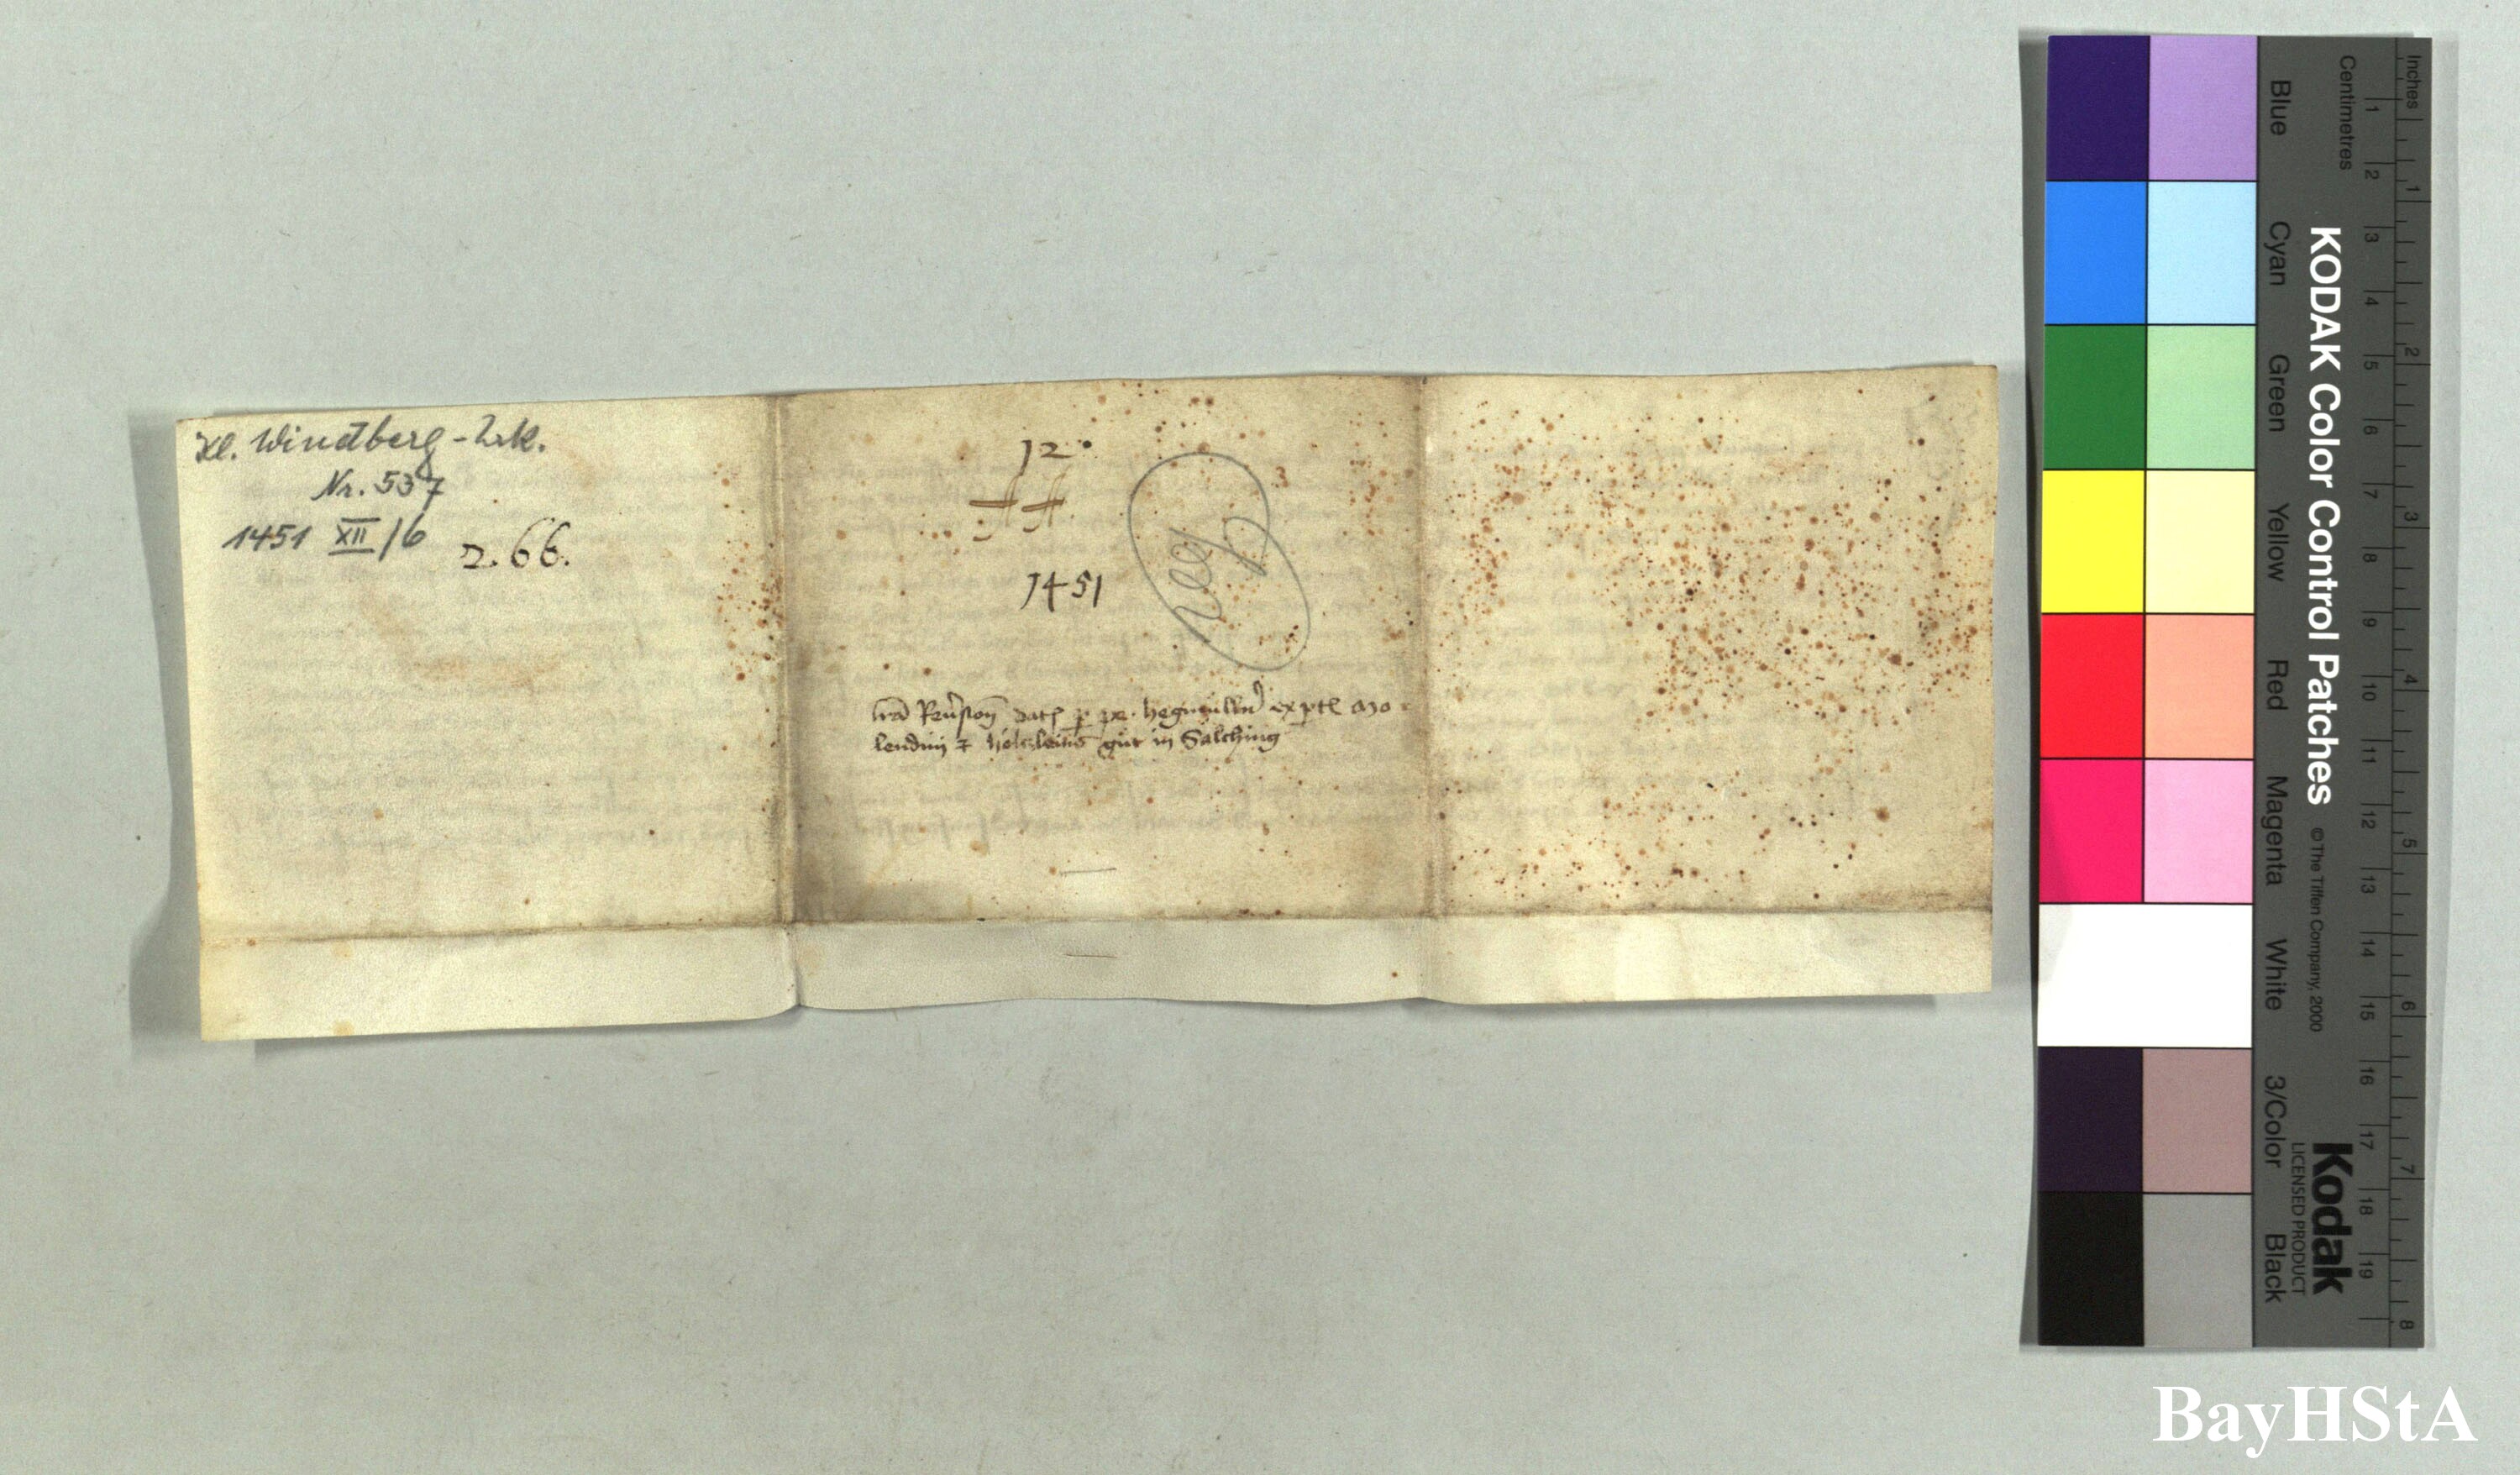 Kl. Windberg-Urk.
Nr. 537
1451 XII/6
2.66.
12.
1451
datꝫ ꝑ pe. hegnmüllnˀ ex pte mo
lendini ⁊ gut in Salching
KODAK Color Control Patches
© The Tiffen Company, 2000
Kodak
LICENSED PRODUCT
Blue Cyan Green Yellow Red Magenta White 3/Color Black
Centimetres
1 2 3 4 5 6 7 8 9 10 11 12 13 14 15 16 17 18 19
Inches
1 2 3 4 5 6 7 8
BayHStA